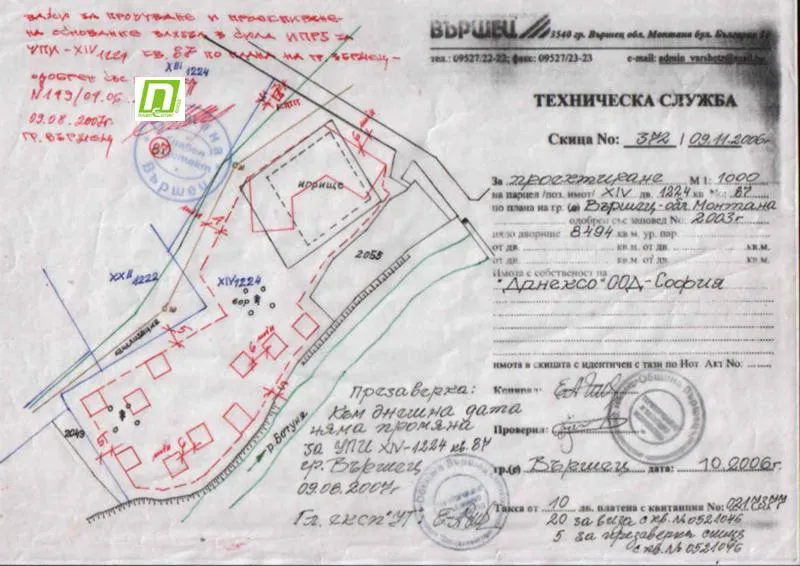 ВАЖИ ЗА ПРОУЧВАНЕ И ПРОЕКТИРАНЕ
НА ОСНОВАНИЕ
УПИ-XIV 1224 КВ. 87 ПО ПЛАНА НА ГР. ВЪРШЕЦ-
ОДОБРЕН СЪС
09.08.2007г
ГР. ВЪРШЕЦ
87
XIII 1224
XXII 1222
XIV 1224
бор
корище
2055
2049
канализация
р. Ботуня
Презаверка:
Към днешна дата
няма промяна
за УПИ XIV-1224 кв. 87
гр. Вършец
09.08.2007г
Гл. експ. УТ:
ВЪРШЕЦ
3540 гр. Вършец обл. Монтана бул. България
тел.: 09527/22-22; факс: 09527/23-23
e-mail:
ТЕХНИЧЕСКА СЛУЖБА
Скица No: 372 / 09.11.2006г
За проектиране М 1: 1000
на парцел /поз. имот/ XIV дв. 1224 кв. No 87
по плана на гр. (с) Вършец-обл. Монтана
одобрен със заповед No. 2003г
цяло дворище 8494 кв.м. ур. пар.
от дв. кв.м. от дв. кв.м.
от дв. кв.м. от дв. кв.м.
Имота е собственост на
"Данексо" ООД-София
имота в скицата е идентичен с тази по Нот. Акт No:
Копирал:
Проверил:
гр.(с) Вършец дата: 10.2006г.
Такса от 10 лв. платена с квитанция No:
20 за виза с кв. № 0521046
5 за презаверка скица
с кв. № 0521046